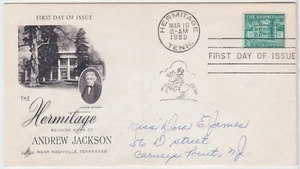 FIRST DAY OF ISSUE
THE
Hermitage
BELOVED HOME OF
ANDREW JACKSON
NEAR NASHVILLE, TENNESSEE
HERMITAGE
MAR 16
9-AM
1959
TENN.
THE HERMITAGE
FIRST DAY OF ISSUE
Miss Dora E. James
56 D street
Carneys Point, N.J.